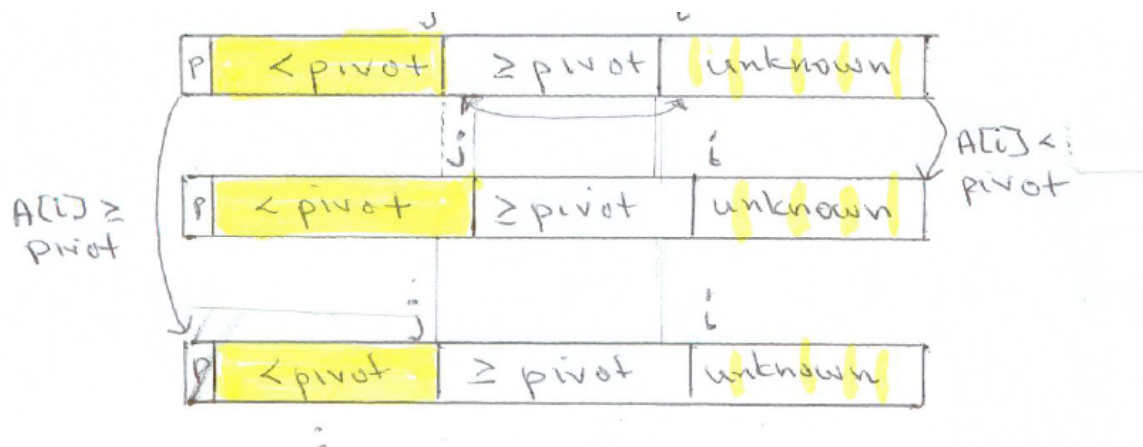 j i
P < pivot ≥ pivot unknown
j i
A[i] < pivot
P < pivot ≥ pivot unknown
A[i] ≥ pivot
j i
P < pivot ≥ pivot unknown